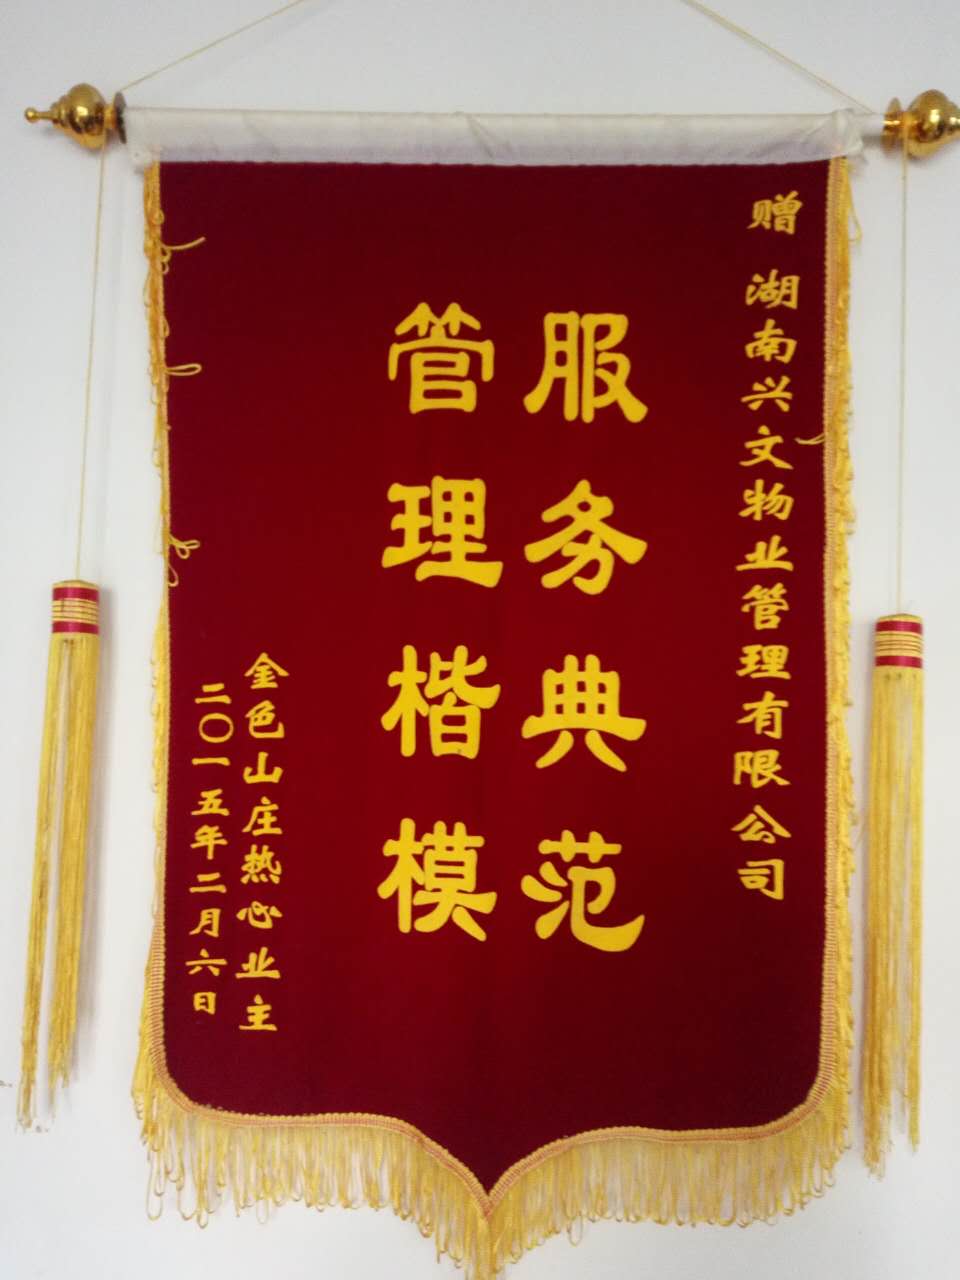 赠 湖南兴文物业管理有限公司
服务典范
管理楷模
金色山庄热心业主
二〇一五年二月六日